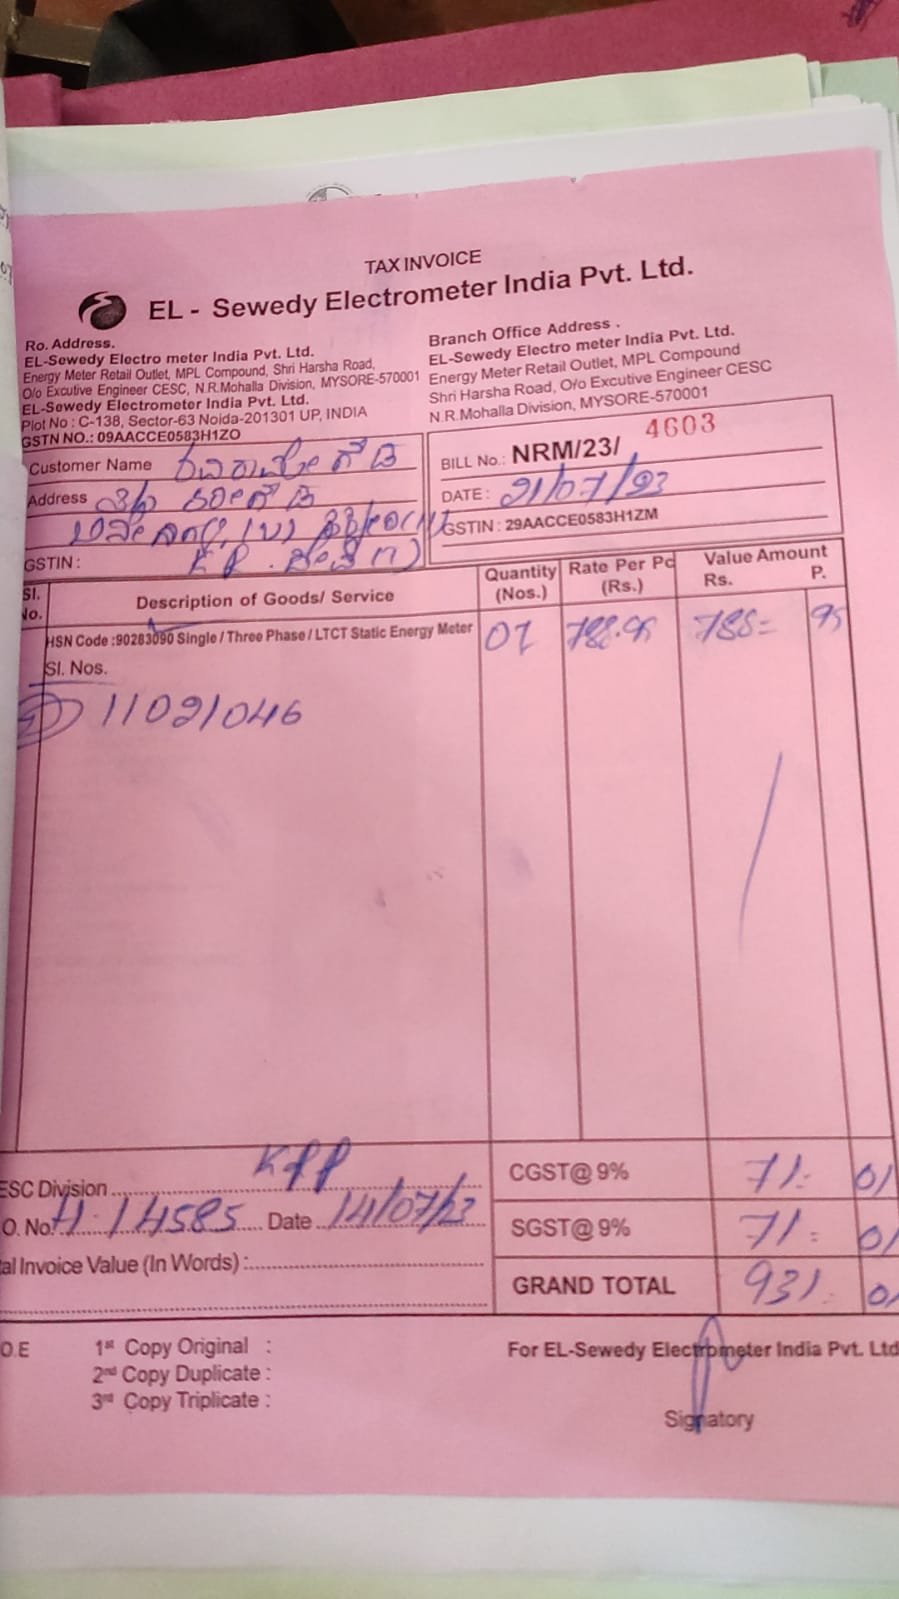 TAX INVOICE
EL - Sewedy Electrometer India Pvt. Ltd.
Ro. Address.
EL-Sewedy Electro meter India Pvt. Ltd.
Energy Meter Retail Outlet, MPL Compound, Shri Harsha Road,
O/o Excutive Engineer CESC, N.R.Mohalla Division, MYSORE-570001
EL-Sewedy Electrometer India Pvt. Ltd.
Plot No : C-138, Sector-63 Noida-201301 UP, INDIA
GSTN NO.: 09AACCE0583H1ZO
Branch Office Address .
EL-Sewedy Electro meter India Pvt. Ltd.
Energy Meter Retail Outlet, MPL Compound
Shri Harsha Road, O/o Excutive Engineer CESC
N.R.Mohalla Division, MYSORE-570001
Customer Name
Address
GSTIN :
BILL No.: NRM/23/ 4603
DATE : 21/07/23
GSTIN : 29AACCE0583H1ZM
Sl. No. Description of Goods/ Service Quantity (Nos.) Rate Per Pc (Rs.) Value Amount Rs. P.
HSN Code :90283090 Single / Three Phase / LTCT Static Energy Meter 01 788.95 788= 95
Sl. Nos.
11021046
ESC Division KPP
O. No. H-14585 Date 14/07/23
al Invoice Value (In Words) :
CGST@ 9% 71. 01
SGST@ 9% 71. 01
GRAND TOTAL 931. 01
O.E 1st Copy Original :
2nd Copy Duplicate :
3rd Copy Triplicate :
For EL-Sewedy Electrometer India Pvt. Ltd
Signatory